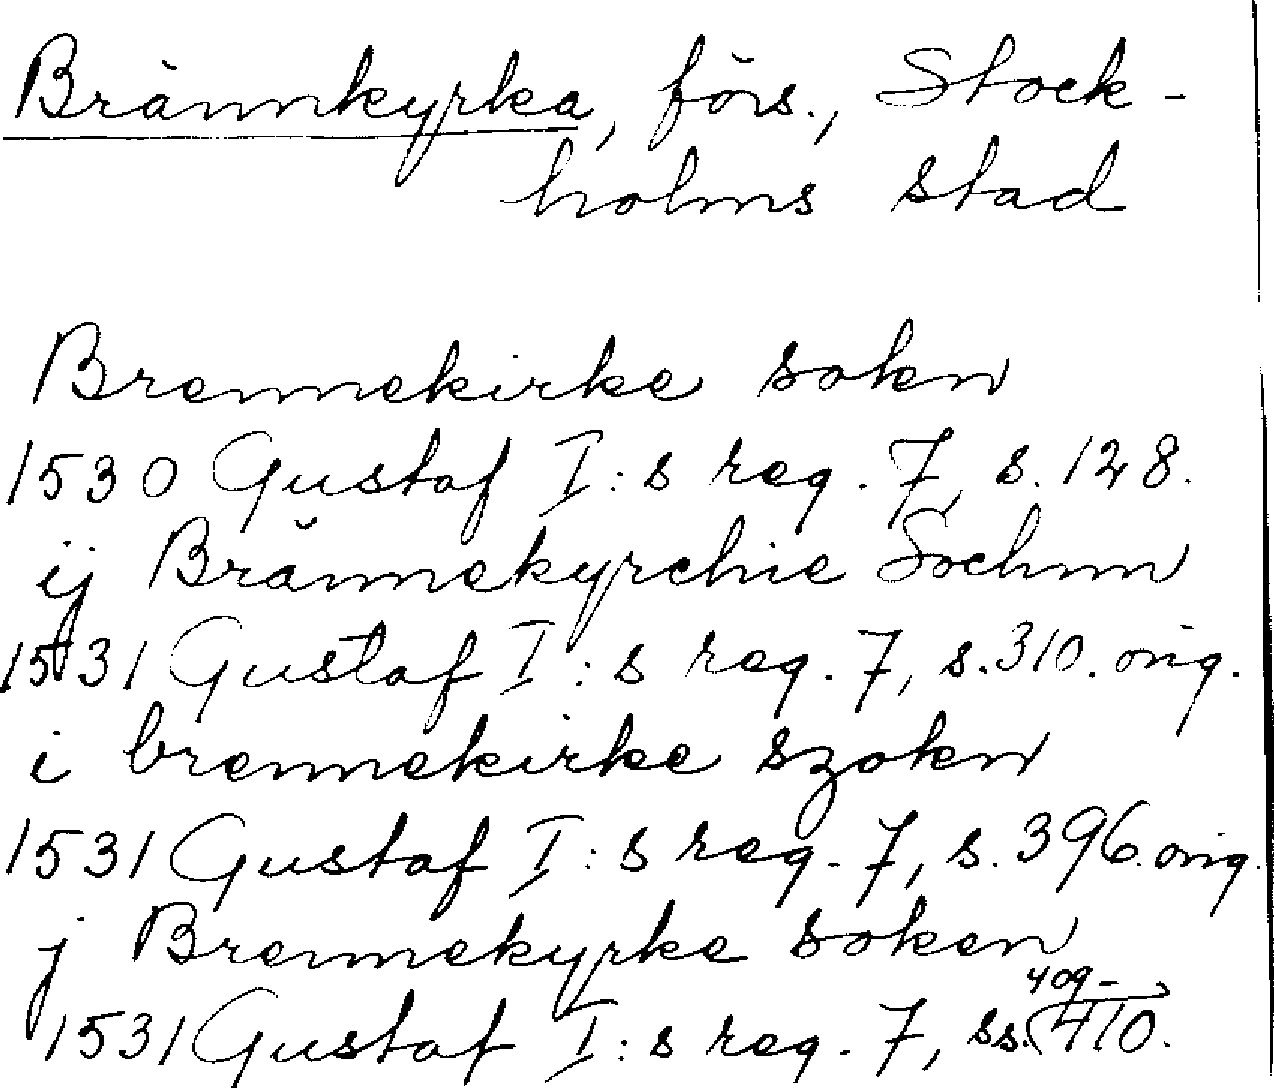 Brännkyrka, förs., Stock-
holms stad
Brennekirke sokn
1530 Gustaf I:s reg. 7, s. 128.
ij Brännekyrchie Sochnn
1531 Gustaf I:s reg. 7, s. 310. orig.
i brennekirke szokn
1531 Gustaf I:s reg. 7, s. 396. orig.
j Brennekyrke soken
1531 Gustaf I:s reg. 7, ss. 409-410.